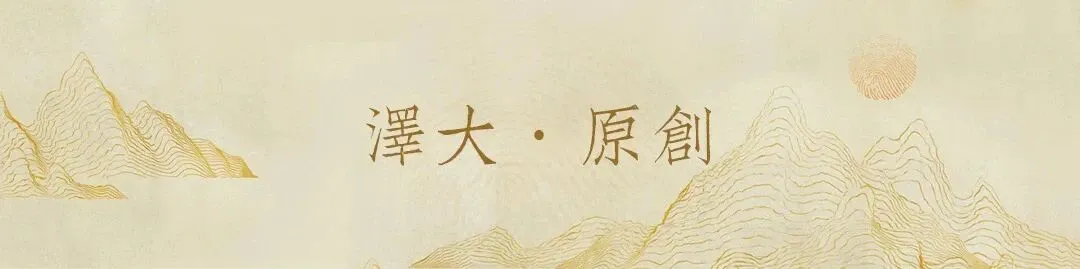 澤大·原創